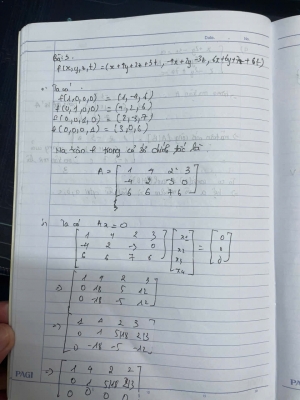 Bài 3.
f(x,y,z,t) = (x+4y+2z+3t, -4x+2y-3z, 6x+6y+7z+6t)
Ta có
f(1,0,0,0) = (1,-4,6)
f(0,1,0,0) = (4,2,6)
f(0,0,1,0) = (2,-3,7)
f(0,0,0,1) = (3,0,6)
Ma trận f trong cơ sở chính tắc là
A = [ 1 4 2 3
-4 2 -3 0
6 6 7 6 ]
Ta có Ax = 0
[ 1 4 2 3
-4 2 -3 0
6 6 7 6 ] [ x1 x2 x3 x4 ] = [ 0 0 0 ]
=> [ 1 4 2 3
0 18 5 12
0 -18 -5 -12 ]
=> [ 1 4 2 3
0 1 5/18 2/3
0 -18 -5 -12 ]
=> [ 1 4 2 2
0 1 5/18 2/3
0 0 0 0
PAGE